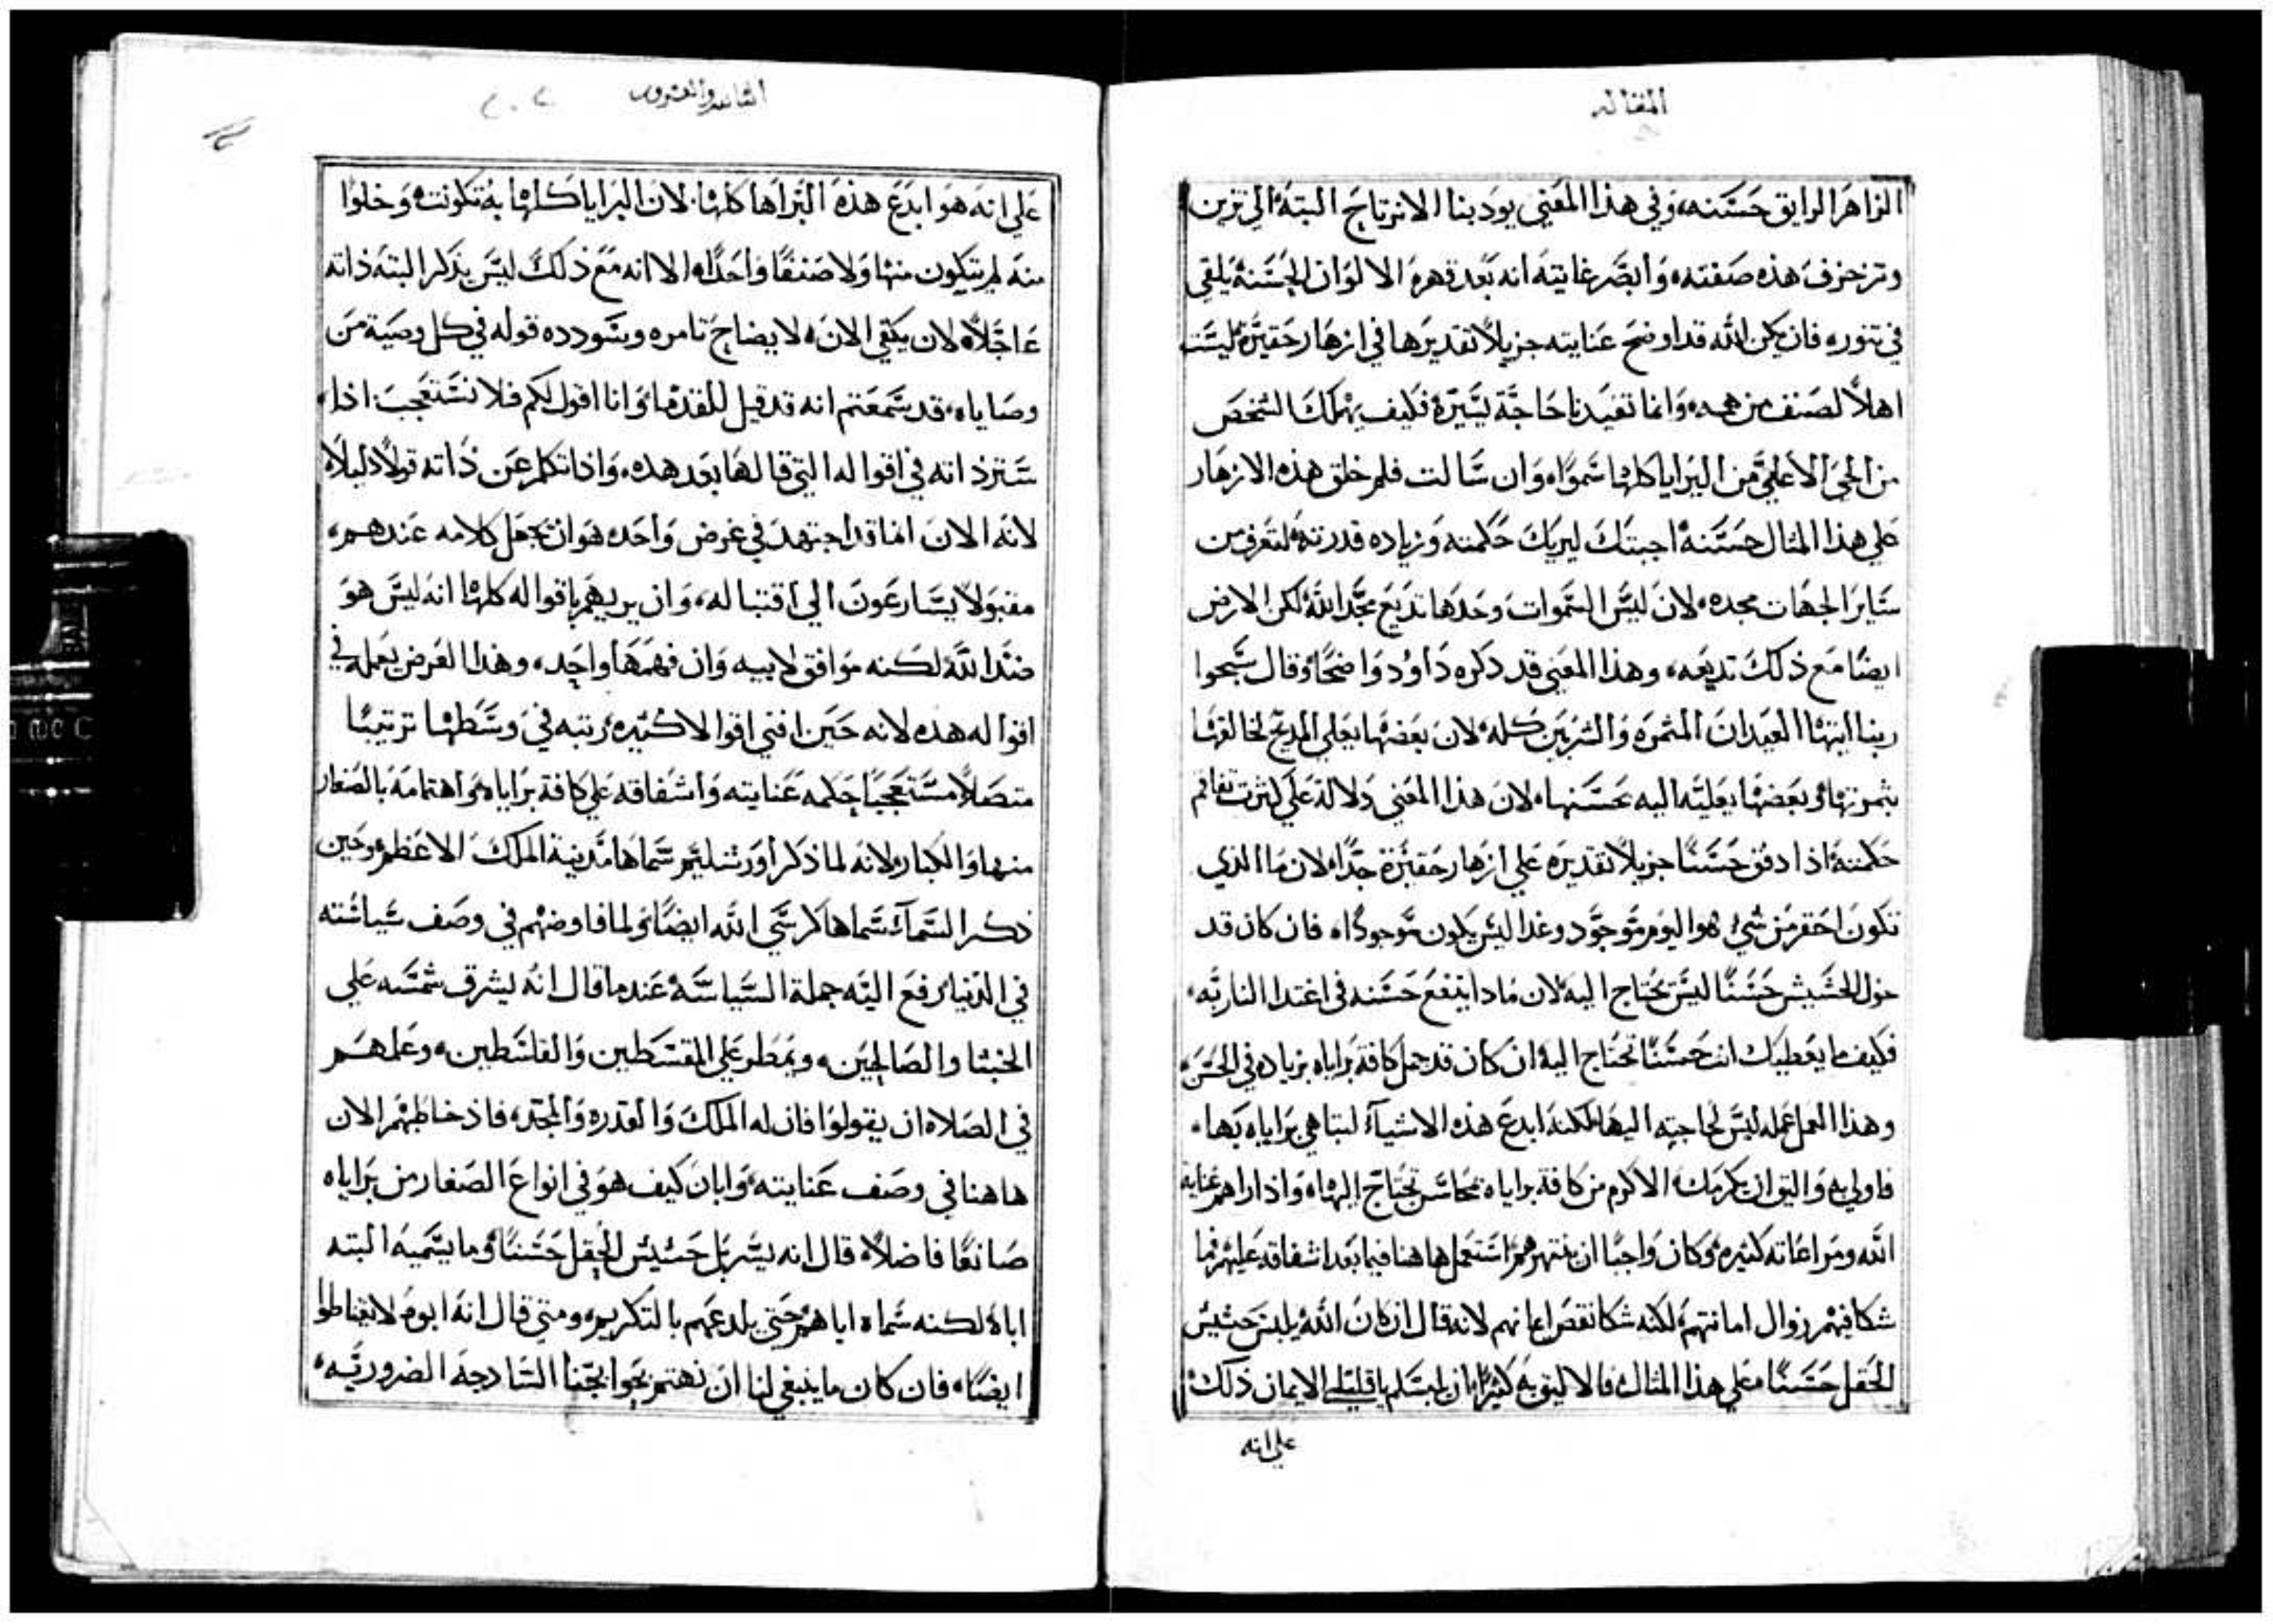 المقاله
الزاهر الرايق حسنه، وفي هذا المعني يودبنا الا نرتاح البتة الي تزين
وتزخرف هذه صفته، وابصر غايته انه بعد قهره الالوان الحسنة يلقي
في تنوره فان يكن الله قد اوضح عنايته جزيلاً تقديرها في ازهار حقيرة ليست
اهلاً لصنف من همه، وانما تفيدنا حاجة يسيرة فكيف يهملك الشخص
من الحي الاعلي من البرايا كلها سموا، وان سالت فلم خلق هذه الازهار
علي هذا المثال حسنة اجبتك ليريك حكمته وزياده قدرته، لتعرف من
ساير الجهات مجده، لان ليس السموات وحدها تديع مجد الله لكن الارض
ايضًا مع ذلك تديعه، وهذا المعني قد دكره داوود واضحًا وقال سبحوا
ربنا ايتها العيدان المثمره والشربين كله، لان بعضها يعلي المديح لخالقها
بثمرتها وبعضها يعليه اليه بحسنها، لان هذا المعني دلالة علي
حكمته اذا دفق حسنًا جزيلاً تقديره علي ازهار حقيرة جدًا، لان ما الذي
تكون احقر من شي هو اليوم موجود وغدا ليس يكون موجودًا، فان كان قد
خول الحشيش حسنًا ليس يحتاج اليه، لان مادا ينفع حسنه في اغتدا النار به،
فكيف ما يعطيك انت حسنًا تحتاج اليه، ان كان قد جمل كافة براياه بزياده في الحسن،
وهذا العمل عمله ليس لحاجته اليها لكنه ابدع هذه الاشيآ لتباهي براياه بها،
فاولي به واليق ان يكرمك الاكرم من كافة براياه بمحاسن تحتاج اليها، واذا اراهم عناية
الله ومراعاته كثيره، وكان واجبًا ان ينتهرهم استعمل هاهنا فيما بعد اشفاقه عليهم فما
شكا فيهم زوال امانتهم، لكنه شكا نقص ايمانهم لانه قال ان كان الله يلبس حشيش
الحقل حسنًا علي هذا المثال فالاليق به كثيرًا ان يا قليلي الايمان ذلك
علي انه
الثانيه والعشرون
علي انه هو ابدع هذه البرايا كلها، لان البرايا كلها به تكونت، وخلوا
منه لم يتكون منها ولا صنفًا واحدًا، الا انه مع ذلك ليس يذكر البتة ذاته
عاجلاً، لان يكتفي الان، لايضاح تامره وسودده قوله في كل وصية من
وصاياه، قد سمعتم انه قد قيل للقدما، وانا اقول لكم فلا تستعجب اذا،
ستر ذاته في اقواله التي قالها بعد هذه، واذا تكلم عن ذاته قولاً دليلاً،
لانه الان انما قد اجتهد في غرض واحد، هو ان يجعل كلامه عندهم،
مقبولاً يسارعون الي اقتباله، وان يريهم باقواله كلها انه ليس هو
ضد الله لكنه موافق لابيه وان فهمها واحد، وهذا الغرض يعمله في
اقواله هذه لانه حين افني اقوالا كثيره، رتبه في وسطها ترتيبًا
متصلاً مستعجبًا حكمه عنايته واشفاقه علي كافة براياه، واهتمامه بالصغار
منها والكبار، لانه لما ذكر اورشليم سماها مدينة الملك الاعظم، وحين
ذكر السمآ سماها كرسي الله ايضًا، ولما فاوضهم في وصف سياسته
في الدنيا، رفع اليه جملة السياسة، عند ما قال انه يشرق شمسه علي
الخبثا والصالحين، ويمطر علي المقسطين والقاسطين، وعلمهم
في الصلاه ان يقولوا فان له الملك والقدره والمجد، فاذ خاطبهم الان
هاهنا في وصف عنايته، وابان كيف هو في انواع الصغار من براياه
صانعًا فاضلاً، قال انه يسربل حشيش الحقل حسنًا، وما يسميه البته
اباه لكنه سماه اباهم حتي يلدعهم بالتكريم، ومتي قال انه ابوهم لا يغتاظوا
ايضًا، فان كان ما ينبغي لنا ان نهتم بحوايجنا السادجة الضروريه،